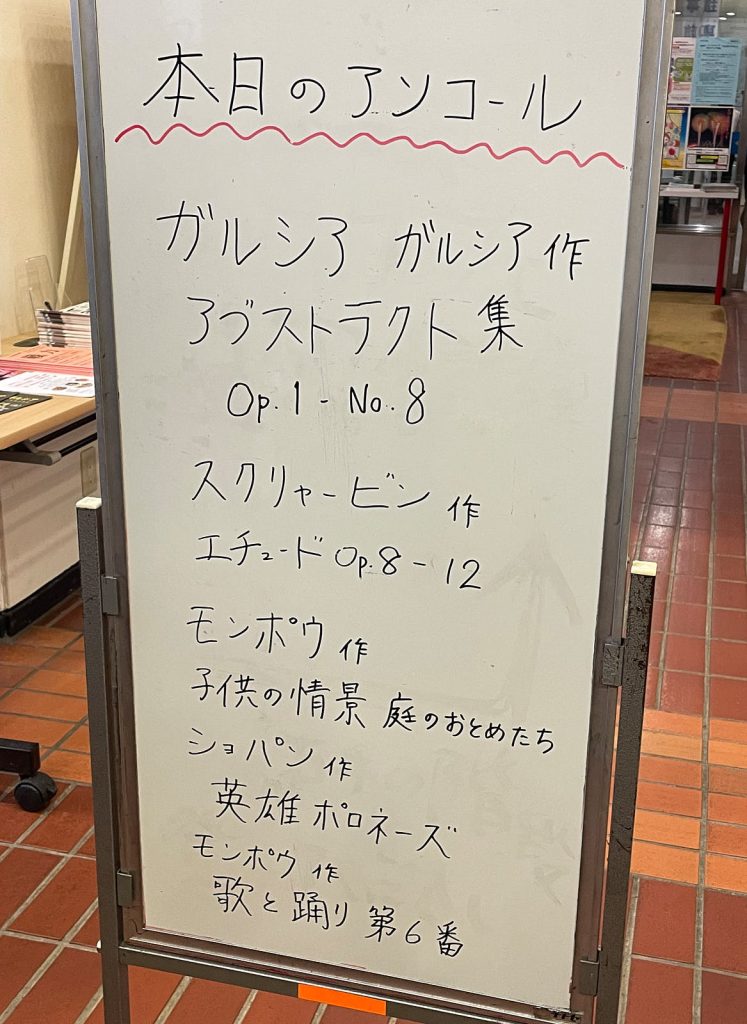 本日のアンコール
ガルシア ガルシア作
アブストラクト集
Op.1-No.8
スクリャービン作
エチュードOp.8-12
モンポウ作
子供の情景 庭のおとめたち
ショパン作
英雄ポロネーズ
モンポウ作
歌と踊り 第6番